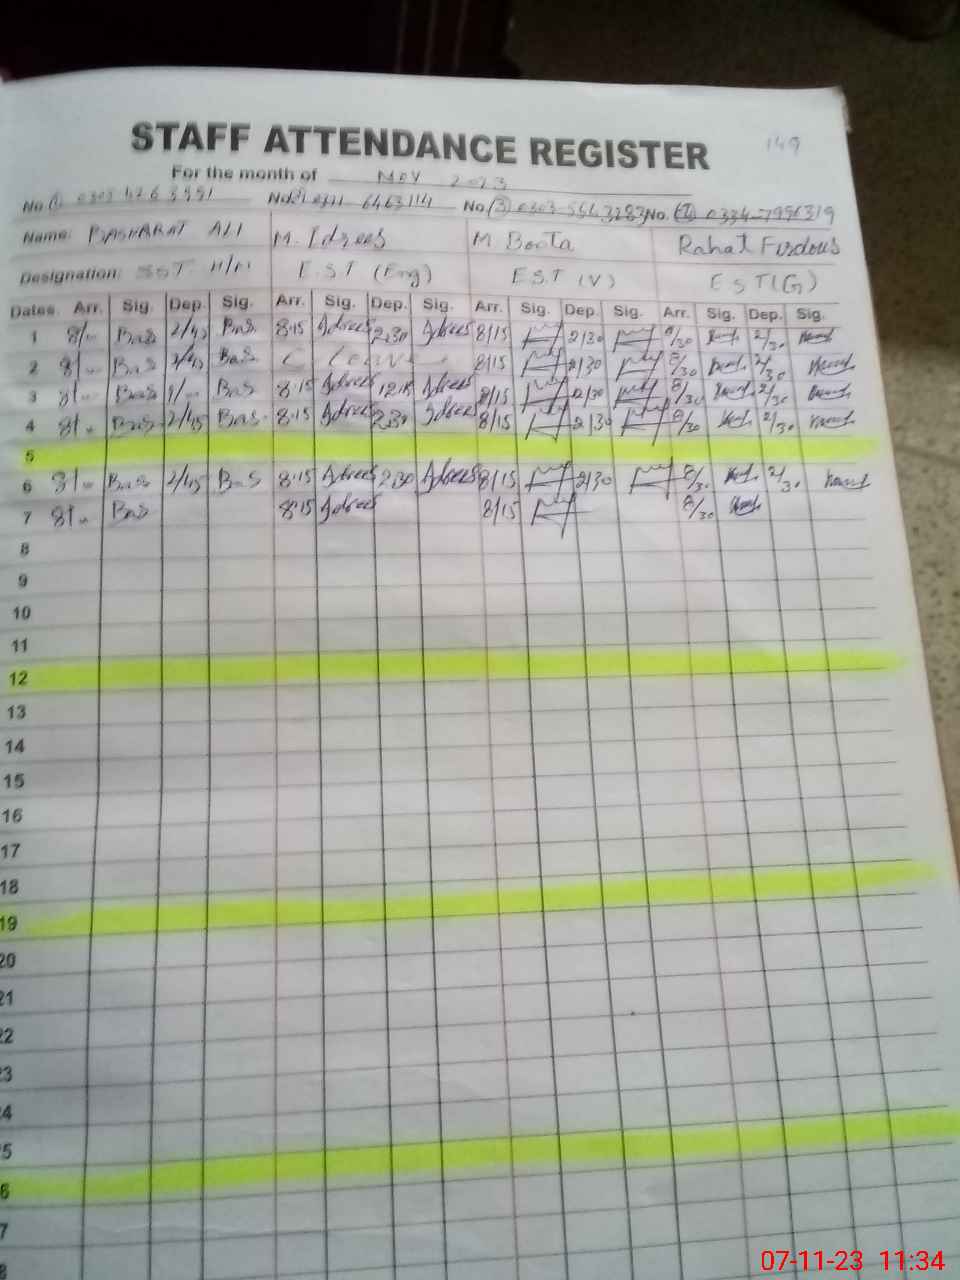 STAFF ATTENDANCE REGISTER 149
For the month of NOV 2023
No (1) No (2) 0321 6463114 No (3) 0303 5663283 No. (4) 0334-7996319
Name: BASHARAT ALI M. Idrees M Boota Rahat Firdous
Designation: SST H/M E.S.T (Eng) E.S.T (V) E S T (G)
Dates Arr. Sig. Dep. Sig. Arr. Sig. Dep. Sig. Arr. Sig. Dep. Sig. Arr. Sig. Dep. Sig.
1 8/.. BaS 2/45 BaS. 8.15 Idrees 2.30 Idrees 8/15 2/30 8/30 2/30
2 8/.. BaS 2/45 BaS. Leave 8/15 2/30 8/30 2/30
3 8/.. BaS BaS 8.15 Idrees 12.15 Idrees 8/15 12/30 8/30 2/30
4 8/.. BaS 2/45 BaS. 8.15 Idrees 2.30 Idrees 8/15 2/30 8/30 2/30
5
6 8/.. BaS 2/45 BaS 8.15 Idrees 2.30 Idrees 8/15 2/30 8/30 2/30
7 8/.. BaS 8.15 Idrees 8/15 8/30
8
9
10
11
12
13
14
15
16
17
18
19
20
21
22
23
24
25
26
7
8
07-11-23 11:34